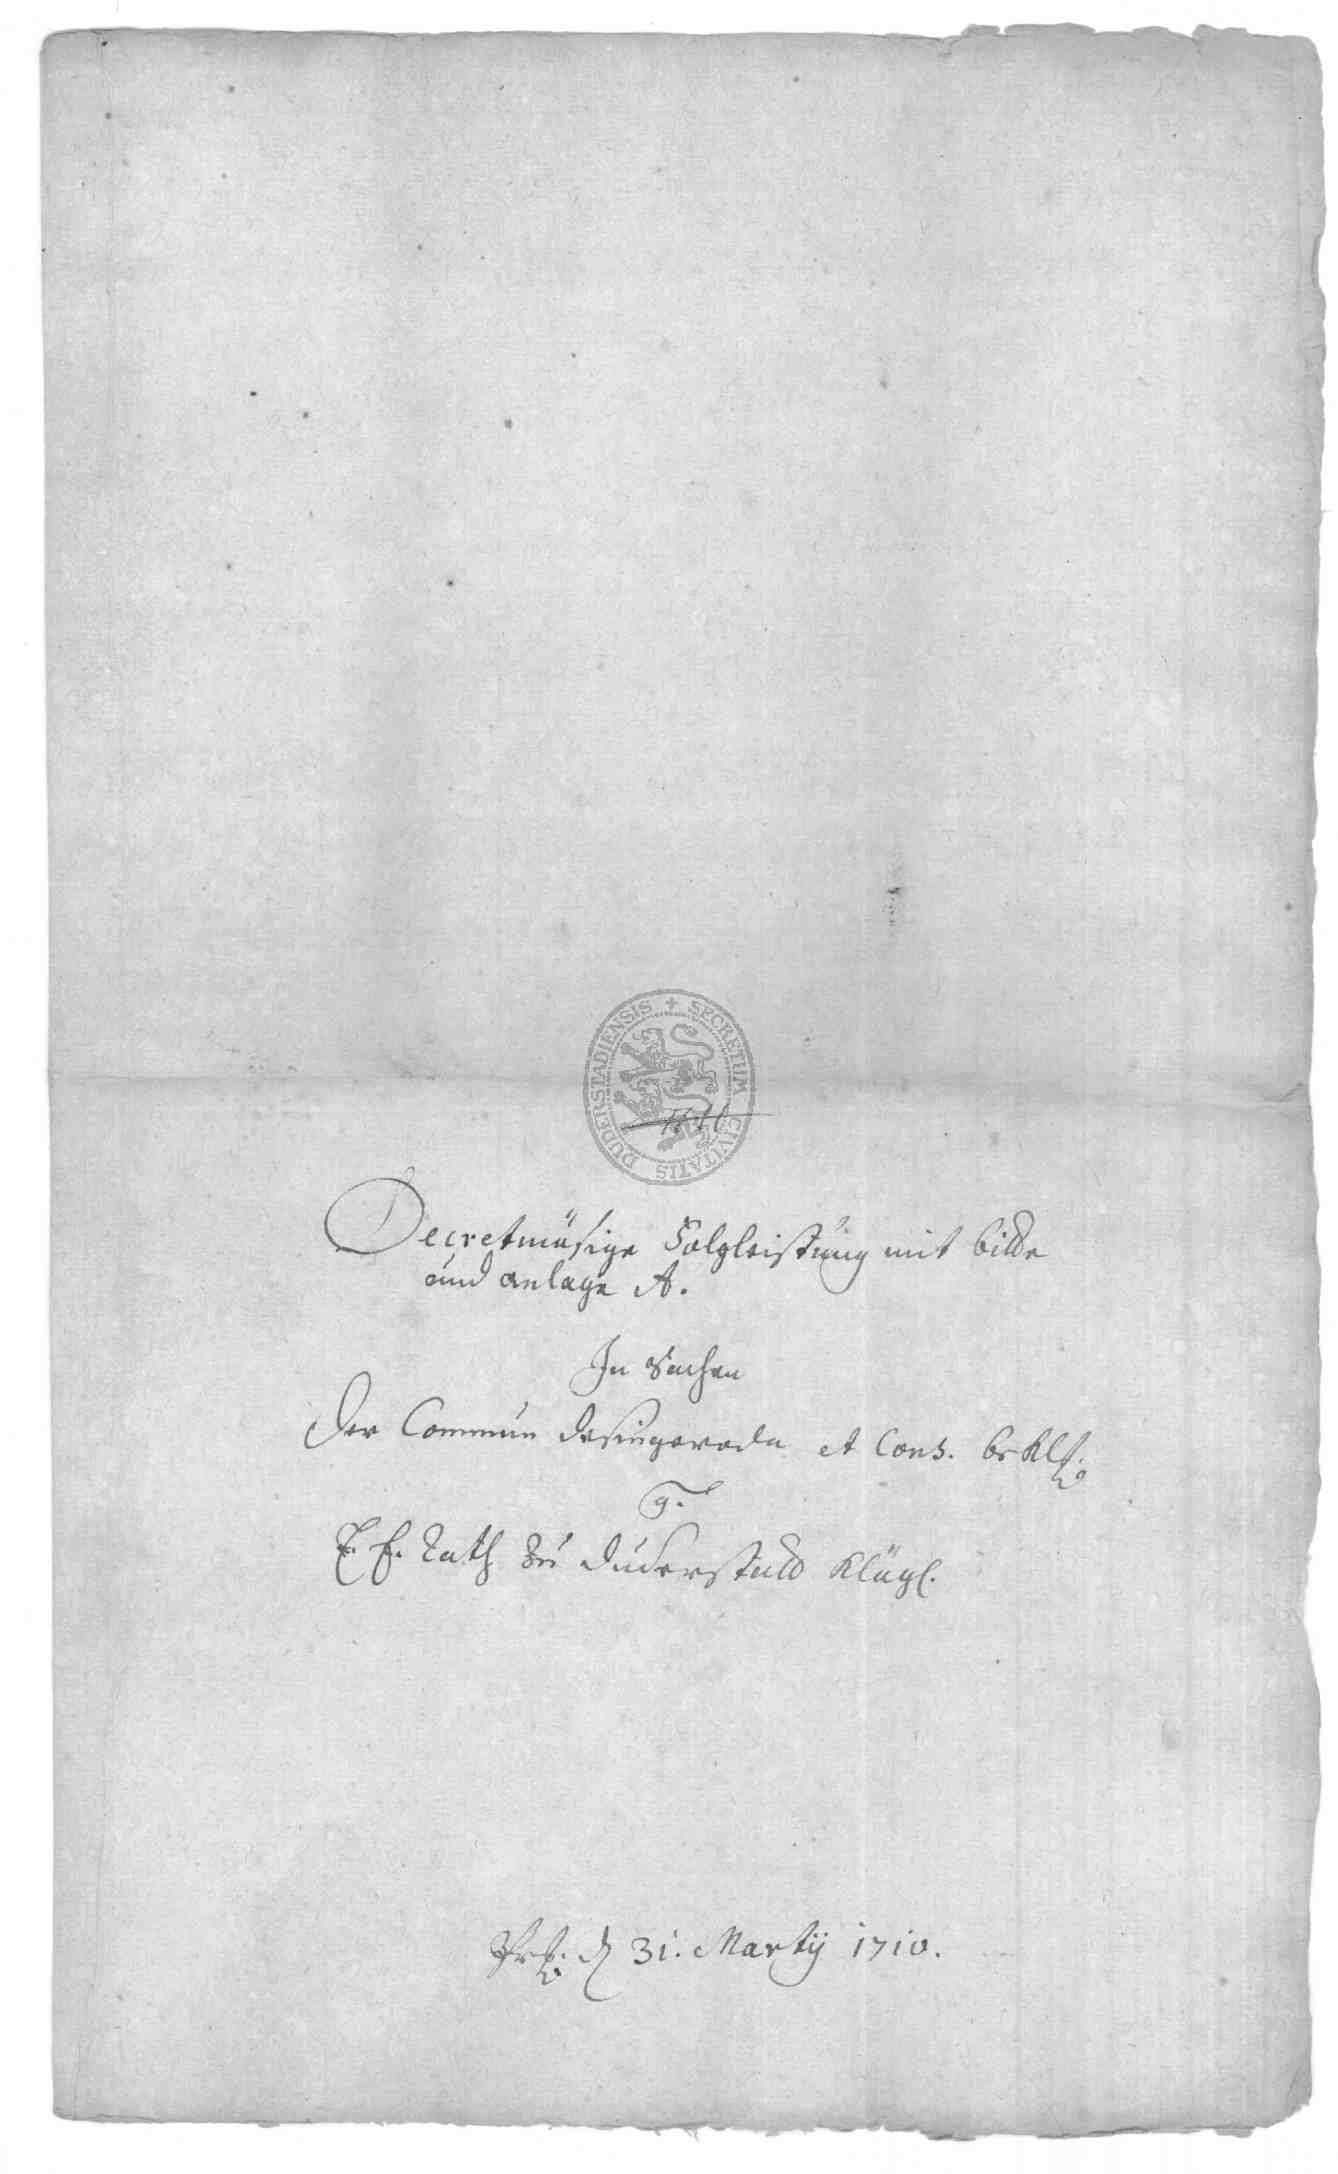 SECRETUM CIVITATIS DUDERSTADIENSIS
Decretmäsige Folgleistung mit bitte
und anlage A.
In Sachen
Der Commun desingeroda et Cons. beklt.
g.
E. E. Rath zu duderstadt Klägl.
Prst. d 31. Martij 1710.